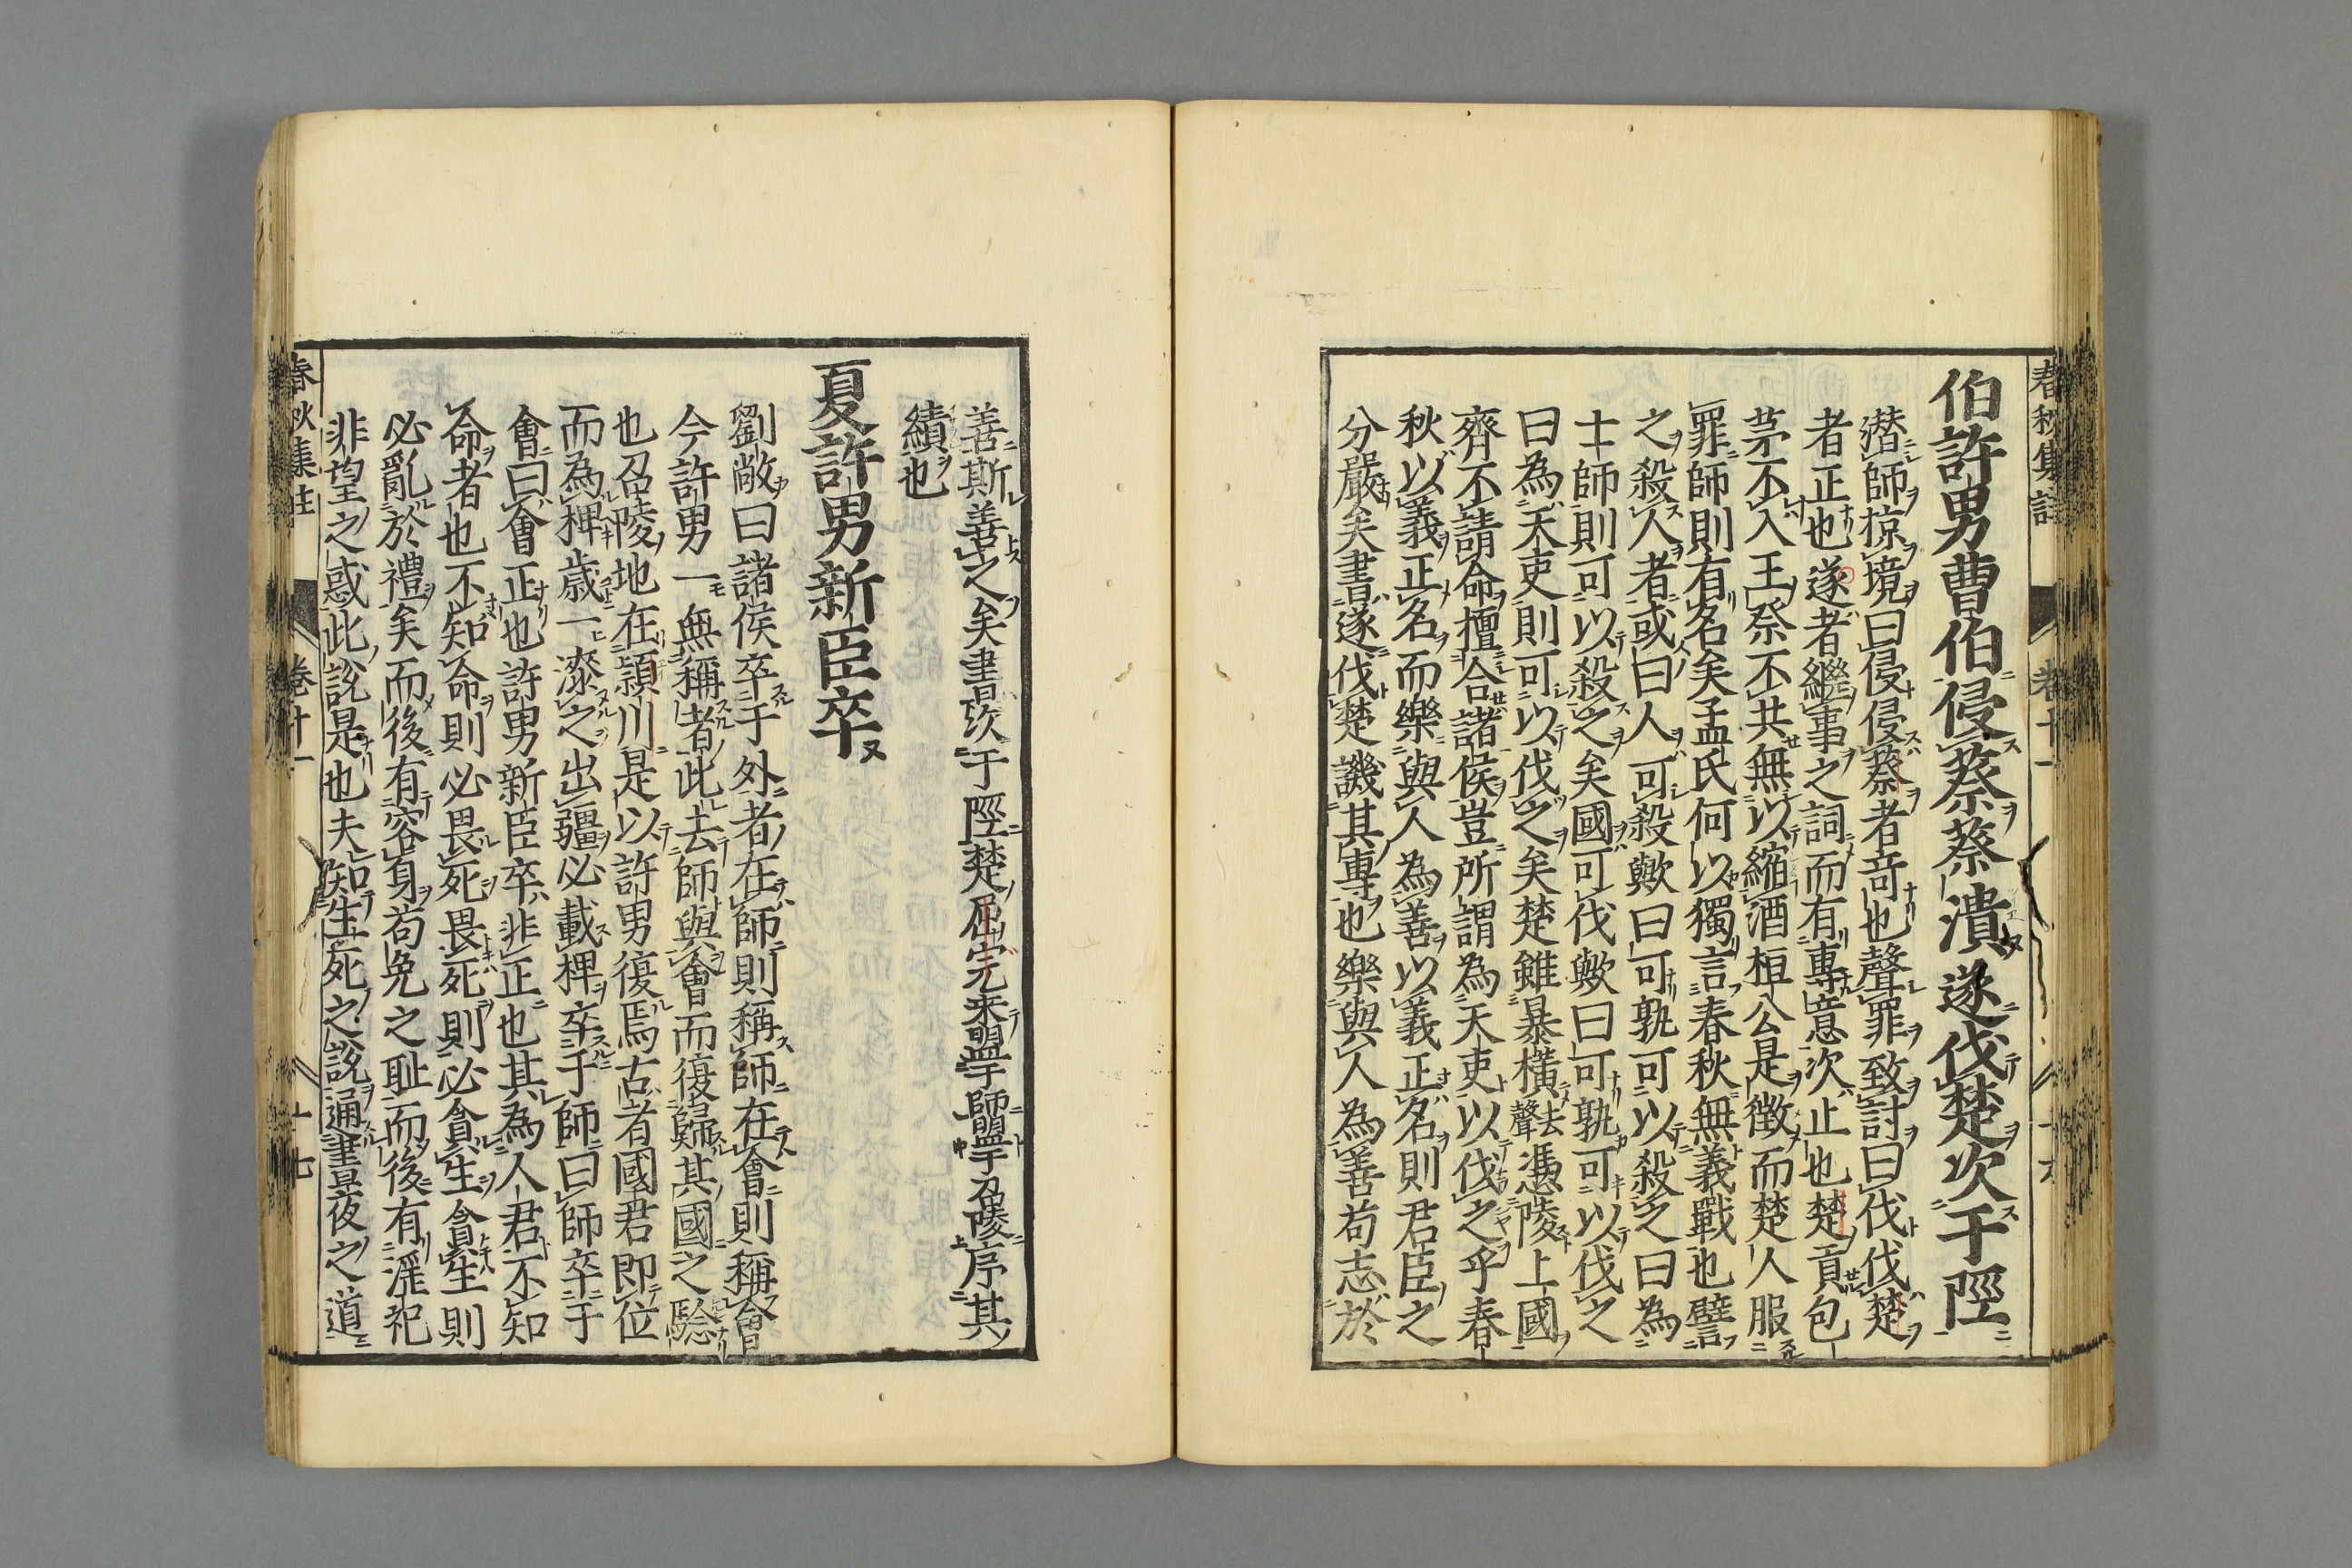 春秋集註 卷十一 十六
伯許男曹伯侵蔡蔡潰遂伐楚次于陘
潜師掠境曰侵侵蔡者竒也聲罪致討曰伐伐楚
者正也遂者繼事之詞而有專意次止也楚貢包
茅不入王祭不共無以縮酒桓公是徴而楚人服
罪師則有名矣孟氏何以獨言春秋無義戰也譬
之殺人者或曰人可殺歟曰可孰可以殺之曰為
士師則可以殺之矣國可伐歟曰可孰可以伐之
曰為天吏則可以伐之矣楚雖暴横去聲憑陵上國
齊不請命擅合諸侯豈所謂為天吏以伐之乎春
秋以義正名而樂與人為善以義正名則君臣之
分嚴矣書遂伐楚譏其專也樂與人為善苟志於
善斯善之矣書次于陘楚屈完来盟于師盟于召陵序其
績也
夏許男新臣卒
劉敞曰諸侯卒于外者在師則稱師在會則稱會
今許男一無稱者此去師與會而復歸其國之驗
也召陵地在頴川是以許男復焉古者國君即位
而為椑歲一漆之出疆必載椑卒于師曰師卒于
會曰會正也許男新臣卒非正也其為人君不知
命者也不知命則必畏死畏死則必貪生貪生則
必亂於禮矣而後有容身苟免之耻而後有滛祀
非望之惑此說是也夫知生死之說通晝夜之道
春秋集註 卷十一 十七